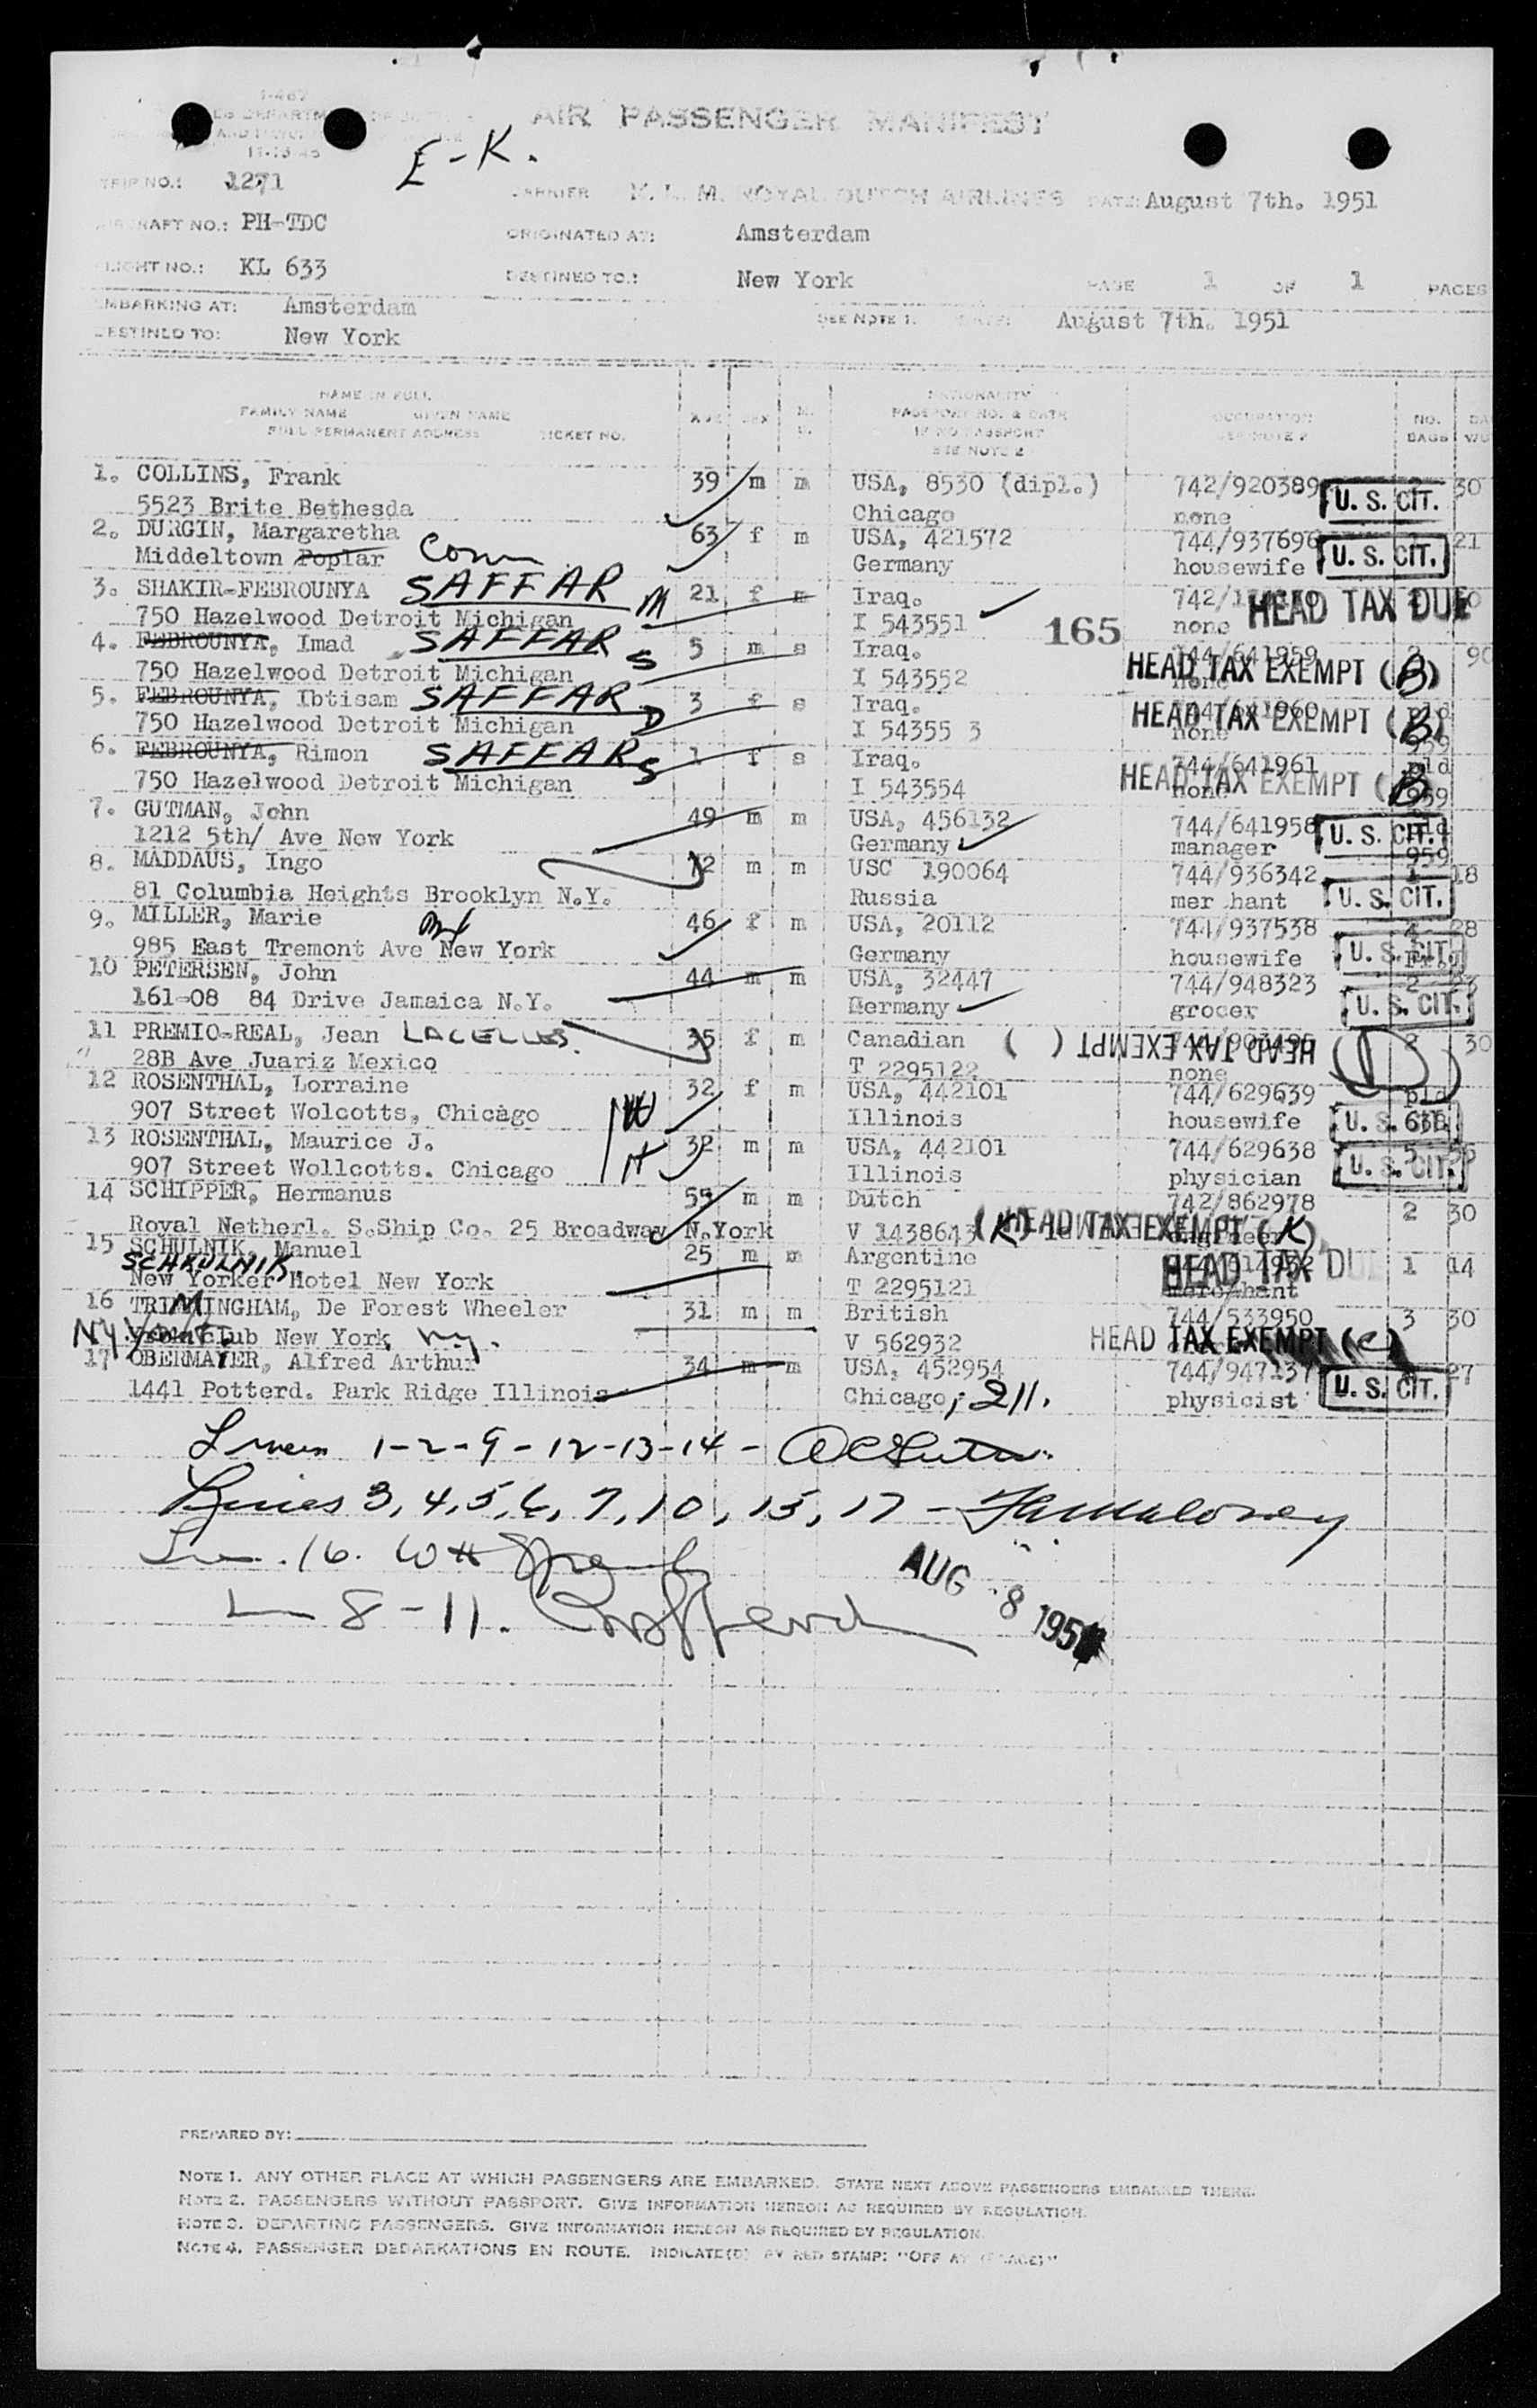 I-467
11-13-45
AIR PASSENGER MANIFEST
E-K.
TRIP NO.: 1271
CARRIER K. L. M. ROYAL DUTCH AIRLINES DATE: August 7th. 1951
AIRCRAFT NO.: PH-TDC
ORIGINATED AT: Amsterdam
FLIGHT NO.: KL 633
DESTINED TO.: New York
PAGE 1 OF 1 PAGES
EMBARKING AT: Amsterdam
SEE NOTE 1. DATE: August 7th. 1951
DESTINED TO: New York
NAME IN FULL
FAMILY NAME GIVEN NAME
FULL PERMANENT ADDRESS TICKET NO.
AGE SEX M. S.
NATIONALITY
PASSPORT NO. & DATE
IF NO PASSPORT
SEE NOTE 2
OCCUPATION
SEE NOTE 2
NO. BAGS
1. COLLINS, Frank 39 m m USA, 8530 (dipl.) 742/920389 U. S. CIT. 30
5523 Brite Bethesda Chicago none
2. DURGIN, Margaretha 63 f m USA, 421572 744/937696 U. S. CIT. 21
Middeltown Poplar Conn Germany housewife
3. SHAKIR-FEBROUNYA SAFFAR M 21 f m Iraq. 742/ HEAD TAX DUE
750 Hazelwood Detroit Michigan I 543551 165 none
4. FEBROUNYA, Imad SAFFAR S 5 m s Iraq. 744/641959 2 90
750 Hazelwood Detroit Michigan I 543552 none HEAD TAX EXEMPT (B)
5. FEBROUNYA, Ibtisam SAFFAR D 3 f s Iraq. 744/641960 pld
750 Hazelwood Detroit Michigan I 54355 3 none HEAD TAX EXEMPT (B) 959
6. FEBROUNYA, Rimon SAFFAR S 1 f s Iraq. 744/641961 pld
750 Hazelwood Detroit Michigan I 543554 none HEAD TAX EXEMPT (B) 959
7. GUTMAN, John 49 m m USA, 456132 744/641958 U. S. CIT. pld
1212 5th/ Ave New York Germany manager 959
8. MADDAUS, Ingo 72 m m USC 190064 744/936342 1 18
81 Columbia Heights Brooklyn N.Y. Russia mer hant U. S. CIT.
9. MILLER, Marie 46 f m USA, 20112 744/937538 4 28
985 East Tremont Ave New York Germany housewife U. S. CIT.
10 PETERSEN, John 44 m m USA, 32447 744/948323 2 23
161-08 84 Drive Jamaica N.Y. Germany grocer U. S. CIT.
11 PREMIO-REAL, Jean LACELLES. 35 f m Canadian HEAD TAX EXEMPT ( ) 2 30
28B Ave Juariz Mexico T 2295122 none
12 ROSENTHAL, Lorraine 32 f m USA, 442101 744/629639 pld
907 Street Wolcotts, Chicago W Illinois housewife U. S. CIT. 638
13 ROSENTHAL, Maurice J. 32 m m USA, 442101 744/629638 5
907 Street Wollcotts. Chicago H Illinois physician U. S. CIT.
14 SCHIPPER, Hermanus 55 m m Dutch 742/862978 2 30
Royal Netherl. S.Ship Co. 25 Broadway N.York V 1438643 HEAD TAX EXEMPT (K)
15 SCHULNIK, Manuel 25 m m Argentine HEAD TAX DUE 1 14
SCHKULNIK
New Yorker Hotel New York T 2295121 merchant
16 TRIMINGHAM, De Forest Wheeler 31 m m British 744/533950 3 30
NY Yacht Club New York, N.Y. V 562932 HEAD TAX EXEMPT (C)
17 OBERMAYER, Alfred Arthur 34 m m USA, 452954 744/947137 27
1441 Potterd. Park Ridge Illinois Chicago, Ill. physicist U. S. CIT.
1-2-9-12-13-14-
Lines 3, 4, 5, 6, 7, 10, 15, 17 -
16.
8-11.
AUG 8 1951
PREPARED BY:
NOTE 1. ANY OTHER PLACE AT WHICH PASSENGERS ARE EMBARKED. STATE NEXT ABOVE PASSENGERS EMBARKED THERE.
NOTE 2. PASSENGERS WITHOUT PASSPORT. GIVE INFORMATION HEREON AS REQUIRED BY REGULATION.
NOTE 3. DEPARTING PASSENGERS. GIVE INFORMATION HEREON AS REQUIRED BY REGULATION.
NOTE 4. PASSENGER DEBARKATIONS EN ROUTE. INDICATE(D) BY RED STAMP: "OFF AT (PLACE)"